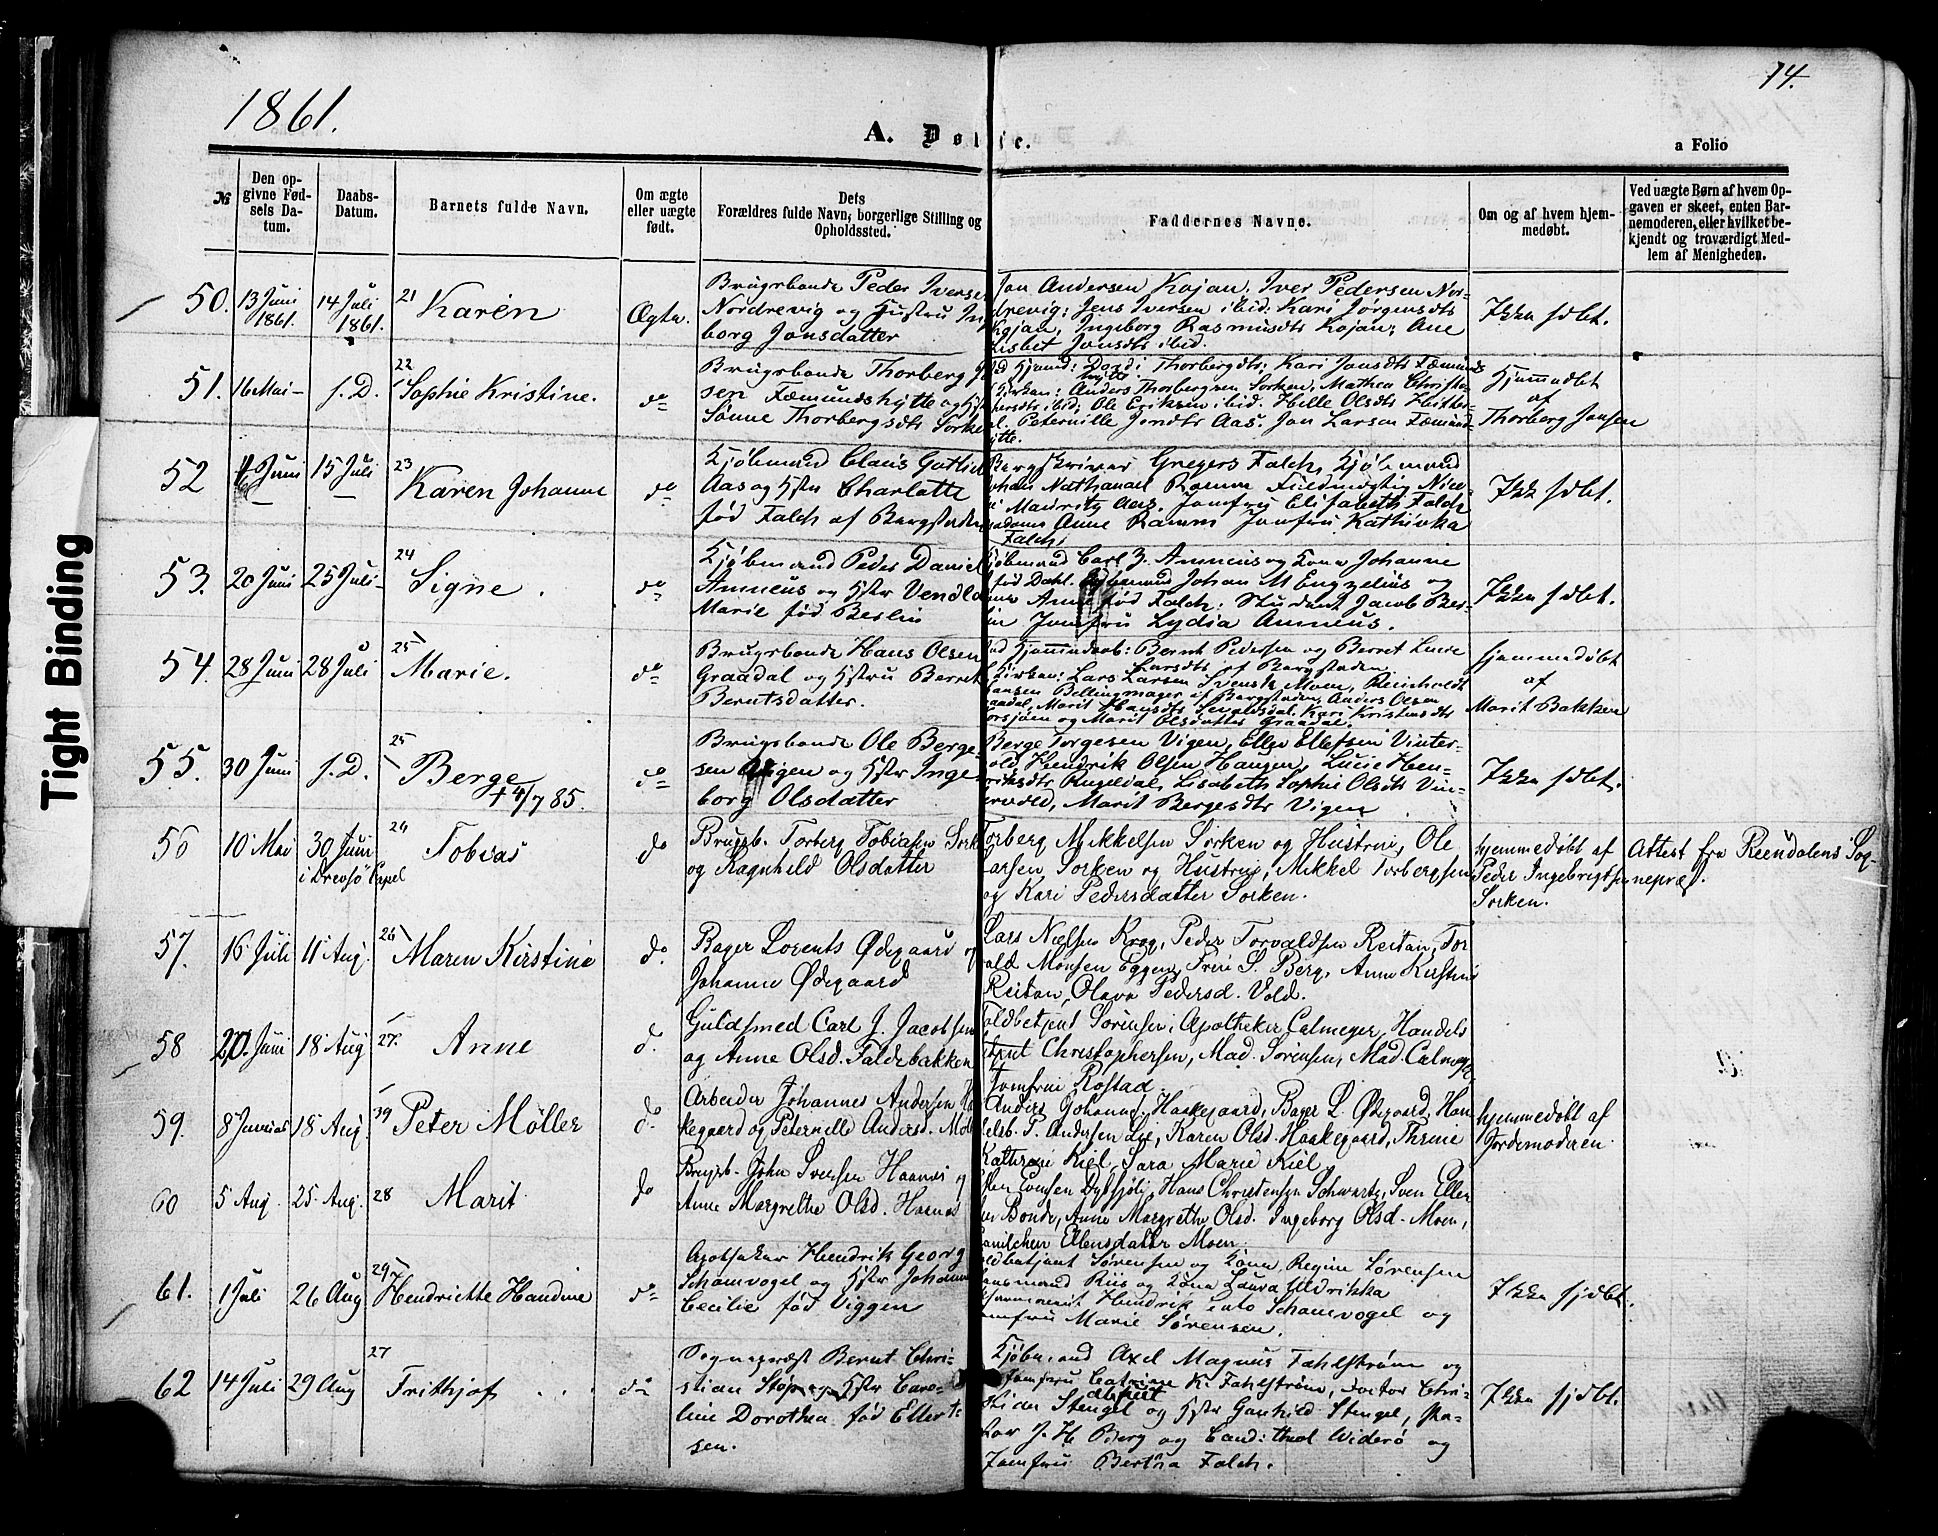 14.
1861.
A. Døbte.
a Folio
№
Den opgivne Fødsels Datum.
Daabs-Datum.
Barnets fulde Navn.
Om ægte eller uægte født.
Dets Forældres fulde Navn, borgerlige Stilling og Opholdssted.
Faddernes Navne.
Om og af hvem hjemmedøbt.
Ved uægte Børn af hvem Opgaven er skeet, enten Barnemoderen, eller hvilket bekjendt og troværdigt Medlem af Menigheden.
50. 13 Juni 1861. 14 Juli 1861. 21 Karen Ægte.
Brugsbonde Peder Iversen
Nordrevig og Hustru Ing
borg Jonsdatter
Jon Andersen Kojan, Iver Pedersen Nor-
drevig; Jens Iversen ibid. Kari Jørgensdtr
Kojan, Ingeborg Rasmusdtr Kojan; Ane
Lisbet Jonsdtr ibid.
Ikke hdbt.
51. 16 Mai – s. D. 22 Sophie Kristine. do
Brugsbonde Thorberg
sen Fæmundshytte og Hstr
Sønne Thorbergsdtr Sorken
Thorbergsdtr; Kari Jonsdtr Fæmunds
hytte
Kirken: Anders Thorbergsen Sorken, Mathea Christo
ibid; Ole Eriksen ibid. Helle Olsdtr Heitte
Peternille Aas. Jon Larsen Fæmund
hytte.
Hjemmedbt
af
Thorberg Jonsen
52 Juni 15 Juli 23 Karen Johanne do
Kjøbmand Claus Gotlieb
Aas og Hstr Charlotte
fød Falch af Bergstaden
Bergskriver Gregers Falch, Kjøbmand
Johan Nathanael Ramm Fuldmægtig Nico
Mauritz Aas. Jomfru Elisabeth Falch
Anne Ramm Jomfru Kathinka
Falch,
Ikke hdbt.
53. 20 Juni 25 Juli – 24 Signe. do
Kjøbmand Peder Daniel
Amneus og Hstr Vendla
Marie fød Beslin
Kjøbmand Carl Z. Amneus og Kone Johanne
fød Dahl. Kjøbmand Johan M Engzelius og
Anne fød Falch: Student Jacob Bes-
lin Jomfru Lydia Amneus.
Ikke hdbt.
54. 28 Juni 28 Juli 25 Marie. do
Brugsbonde Hans Olsen
Graadal og Hstru Berret
Berntsdatter.
Ved Hjemmedaab: Bernt Pedersen og Berret Lucie
Larsdtr af Bergstaden
Kirken: Lars Larsen Svensk Moen, Reinholdt
Hansen Bellingmager af Bergstaden, Anders Olsen
Graadal, Marit Hansdtr Kari Kristensdtr
og Marit Olsdatter Graadal.
hjemmedøbt
af
Marit Bakken
55. 30 Juni s. D. 25 Berge
+ 4/7 85.
do
Brugsbonde Ole Berge-
sen Vigen og Hstr Inge
borg Olsdatter
Berge Torgesen Vigen, Ellev Ellefsen Vinter-
vold, Hendrik Olsen Hangen, Lucie Hen-
riksdtr Rugeldal, Lisabeth Sophie Olsdtr Vin-
tervold, Marit Bergesdtr Vigen
Ikke hdbt.
56 10 Mai 30 Juni
i Drevsø Capel
26 Tobias do
Brugsb. Torberg Tobiasen Sork
og Ragnhild Olsdatter
Torberg Mikkelsen Sorken og Hustru, Ole
Larsen Sorken og Hustru, Mikkel Torbergsen
og Kari Pedersdatter Sorken.
hjemmedøbt af
Peder Ingebrigtsen
Sorken.
Attest fra Reendalens Sog-
nepræst.
57. 16 Juli 11 Aug. 26 Maren Kirstine do
Bager Lorents Ødegaard og
Johanne Ødegaard
Lars Nielsen Krog, Peder Torvaldsen Reitan, Tor
vald Monsen Eggen, Frue S. Berg, Anne Kirstine
Reitan, Olava Pedersd. Vold.
58 20. Juni 18 Aug 27. Anne d.
Guldsmed Carl J. Jacobsen
og Anne Olsd. Faldebakken
Toldbetjent Sørensen, Apotheker Calmeyer, Handels
Christophersen, Mad. Sørensen, Mad. Calmeyer
Jomfrue Rostad.
59. 8 Junius 18 Aug. 39 Peter Møller do
Arbeider Johannes Andersen Ha
kegaard og Peternelle Andersd. Møl
Anders Johannes. Haakegaard, Bager L. Ødegaard, Han
delsb. P. Andersen Lie, Karen Olsd. Haakegaard, Thrine
Kathrine Kiel, Sara Marie Kiel.
hjemmedøbt af
Jordemoderen
60 5 Aug. 25 Aug. 28 Marit do
Brugsb. John Svensen Haanes og
Anne Margrethe Olsd. Haanes
Evensen Dybsjølij, Hans Christensen Schwartz, Sven Ellen
Bonde, Anne Margrethe Olsd. Ingeborg Olsd. Moen,
Ellensdatter Moen.
61. 1 Juli 26 Aug 29 Hendriette Handine do
Apotheker Hendrik Georg
Schamvogel og Hstr Johanne
Cecilie fød Viggen
Toldbetjent Sørensen og Kone Regine Sørensen
Lensmand Riis og Kone Laura Uldrikka
Hendrik Schamvogel og
Jomfru Marie Sørensen.
Ikke hjdbt.
62 14 Juli 29 Aug 27 Frithjof do
Sognepræst Bernt Chri-
stian Støp og Hstr Caro-
line Dorothea fød Ellert-
sen.
Kjøbmand Axel Magnus Fahlstrøm og
Jomfru Catrine K. Fahlstrøm, Doctor Chri-
stider Stengel og Hstr Gunhild Stengel, Pa-
stor J. H Berg og Cand: theol Widerø og
Jomfru Bertha Falch.
Ikke hjdbt.
Tight Binding